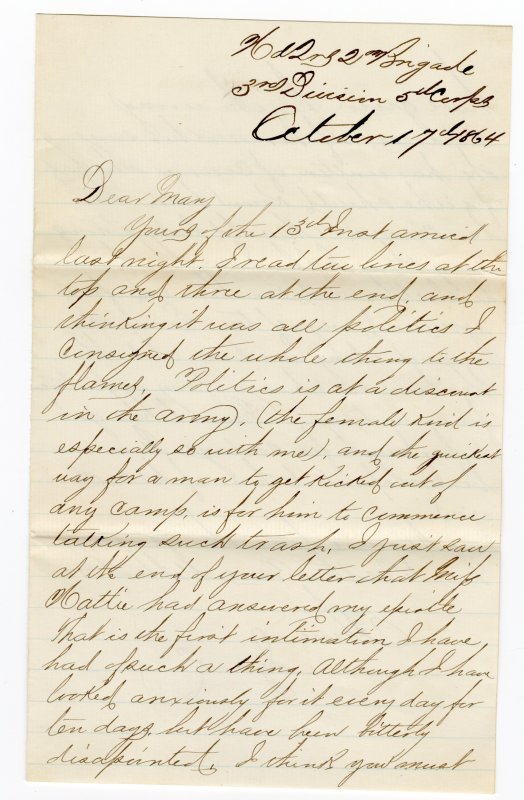 Hd Qrs 2nd Brigade
3rd Division 5th Corps
October 17th 1864
Dear Mary
Yours of the 13th Inst arrived
last night. I read two lines at the
top and three at the end, and
thinking it was all politics I
consigned the whole thing to the
flames. Politics is at a discount
in the army, (the female kind is
especially so with me), and the quickest
way for a man to get kicked out of
any camp, is for him to commence
talking such trash. I just saw
at the end of your letter that Miss
Hattie had answered my epistle
That is the first intimation I have
had of such a thing, Although I have
looked anxiously for it every day for
ten days but have been bitterly
disapointed. I think you must